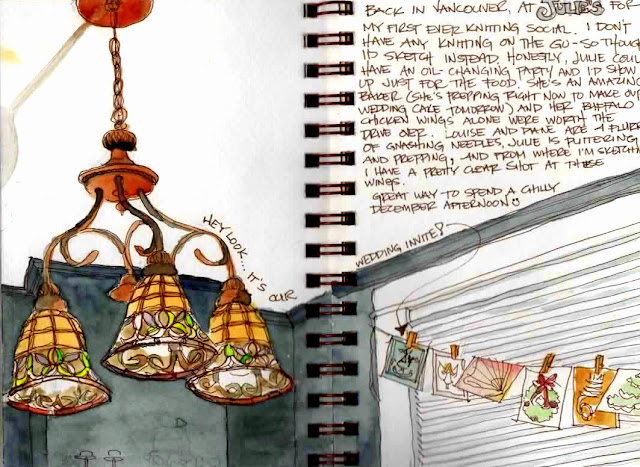 BACK IN VANCOUVER, AT JULIE'S FOR
MY FIRST EVER KNITTING SOCIAL. I DON'T
HAVE ANY KNITTING ON THE GO - SO THOUGHT
I'D SKETCH INSTEAD. HONESTLY, JULIE COULD
HAVE AN OIL-CHANGING PARTY AND I'D SHOW
UP JUST FOR THE FOOD. SHE'S AN AMAZING
BAKER (SHE'S PREPPING RIGHT NOW TO MAKE OUR
WEDDING CAKE TOMORROW) AND HER BUFFALO
CHICKEN WINGS ALONE WERE WORTH THE
DRIVE OVER. LOUISE AND DIANE ARE A FLURRY
OF GNASHING NEEDLES, JULIE IS PUTTERING
AND PREPPING, AND FROM WHERE I'M SKETCHING
I HAVE A PRETTY CLEAR SHOT AT THESE
WINGS.
GREAT WAY TO SPEND A CHILLY
DECEMBER AFTERNOON
HEY LOOK... IT'S OUR
WEDDING INVITE!